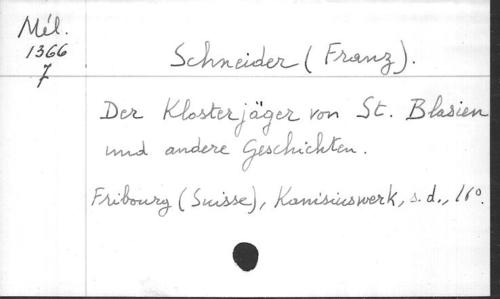 Mél.
1366
7
Schneider (Franz).
Der Klosterjäger von St. Blasien
und andere Geschichten.
Fribourg (Suisse), Kanisiuswerk, s.d., 16º.